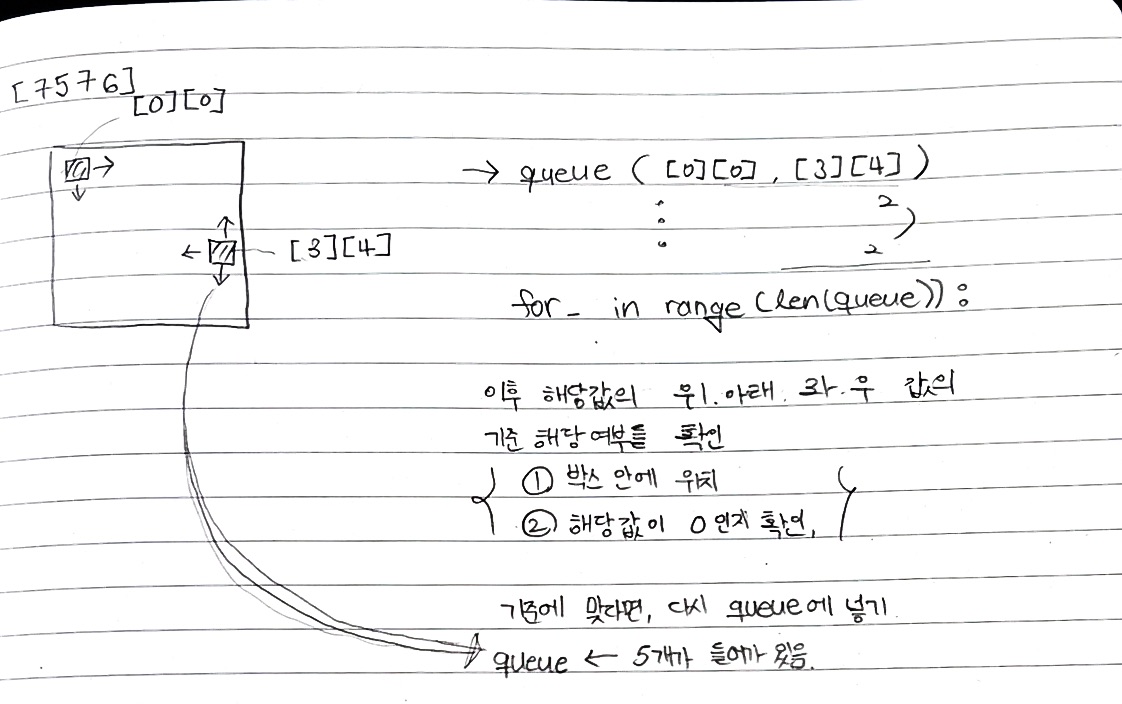 [7576]
[0][0]
→ queue ( [0][0] , [3][4] )
2
2
[3][4]
for _ in range (len(queue)) :
이후 해당값의 위. 아래. 좌. 우 값의
기준 해당 여부를 확인
① 박스 안에 위치
② 해당값이 0인지 확인,
기준에 맞다면, 다시 queue에 넣기
queue ← 5개가 들어가 있음.